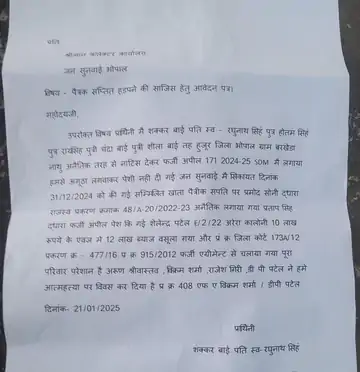 प्रति
श्रीमान कलेक्टर कार्यालय
जन सुनवाई भोपाल
विषय - पैत्रक सम्पित हडपने की साजिस हेतु आवेदन पत्र।
महोदयजी,
उपरोक्त विषय पार्थिनी मै शक्कर बाई पति स्व - रघुनाथ सिंह पुत्र होतम सिंह
पुत्र रायसिंह पुत्री चंदा बाई पुत्री शीला बाई तह हुजुर जिला भोपाल ग्राम बरखेडा
नाथु अनैतिक तरह से नाटिस देकर फर्जी अपील 171 2024-25 SDM मै लगाया
हमसे अगूठा लगवाकर पेशी नही दी गई जन सुनवाई मै सिकांयत दिनाक
31/12/2024 को की गई सम्मिलित खाता पैत्रीक सपति पर प्रमोद सोनी दधारा
राजस्व प्रकरण क्रमाक 48/A-20/2022-23 अनैतिक लगाया गया प्रताप सिंह
दधारा फर्जी अपील पेश कि गई शैलेन्द्र पटेल ई/2/22 अरेरा कालोनी 10 लाख
रूपये के एवज मे 12 लाख ब्याज वसूला गया और प्र क्र जिला कोर्ट 173A/12
प्रकरण क्र - 477/16 प्र क्र 915/2012 फर्जी एग्रीमेन्ट से चलाया गया पूरा
परिवार परेशान है अरूण श्रीवास्तव , विक्रम शर्मा ,राजेश गिरी ,डी पी पटेल ने हमे
आत्महत्या पर विवस कर दिया है प्र क्र 408 एफ ए विक्रम शर्मा / डीपी पटेल
दिनांक- 21/01/2025
पार्थिनी
शक्कर बाई पति स्व-रघुनाथ सिंह